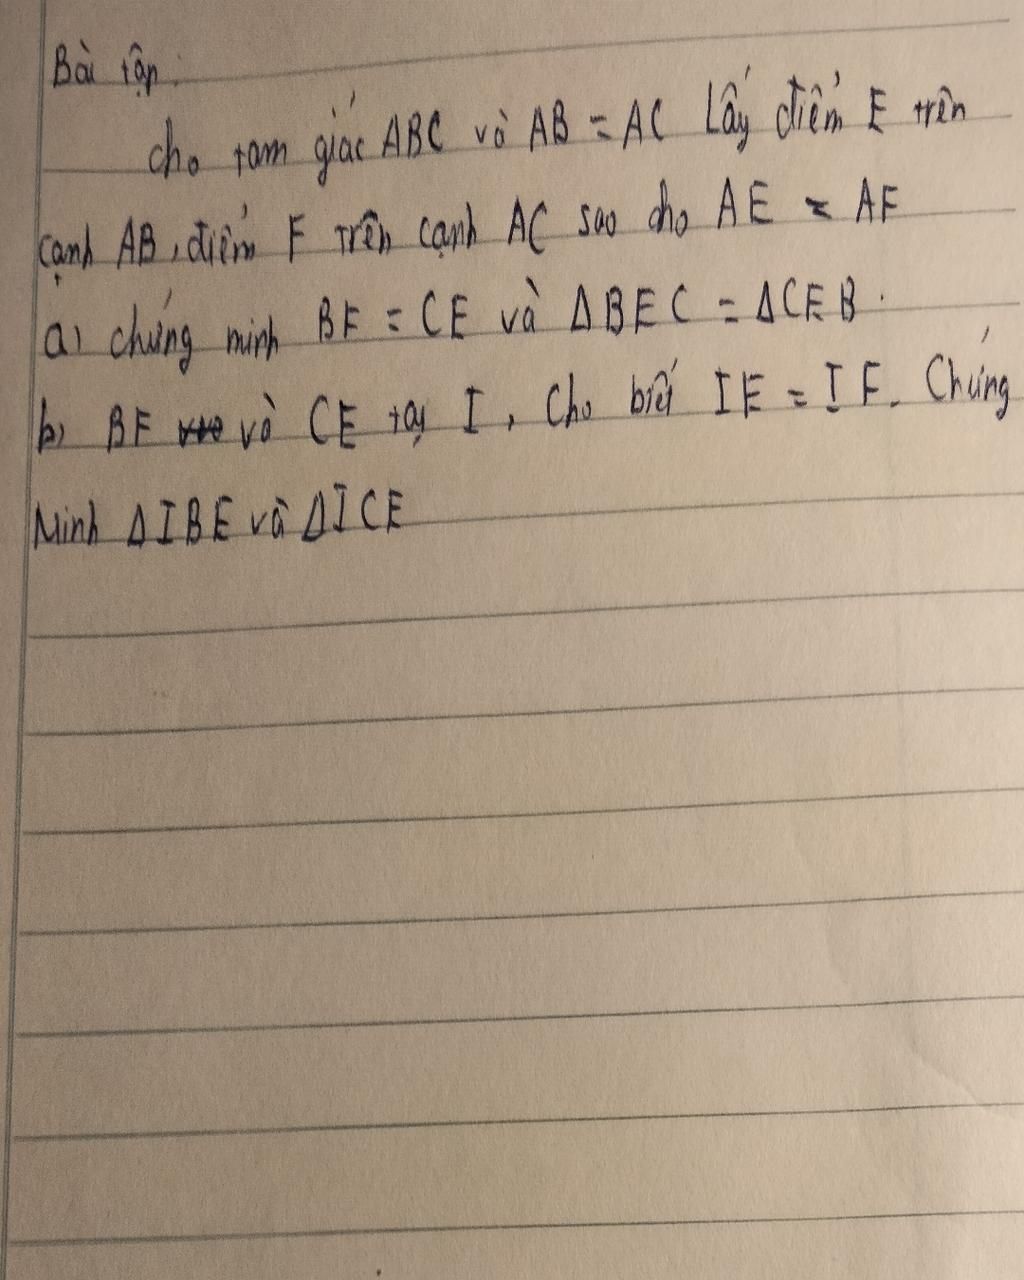 Bài tập:
cho tam giác ABC và AB = AC Lấy điểm E trên
cạnh AB, điểm F trên cạnh AC sao cho AE = AF
a) chứng minh BF = CE và ΔBEC = ΔCEB.
b) BF và CE tại I, Cho biết IE = IF. Chứng
Minh ΔIBE và ΔICE